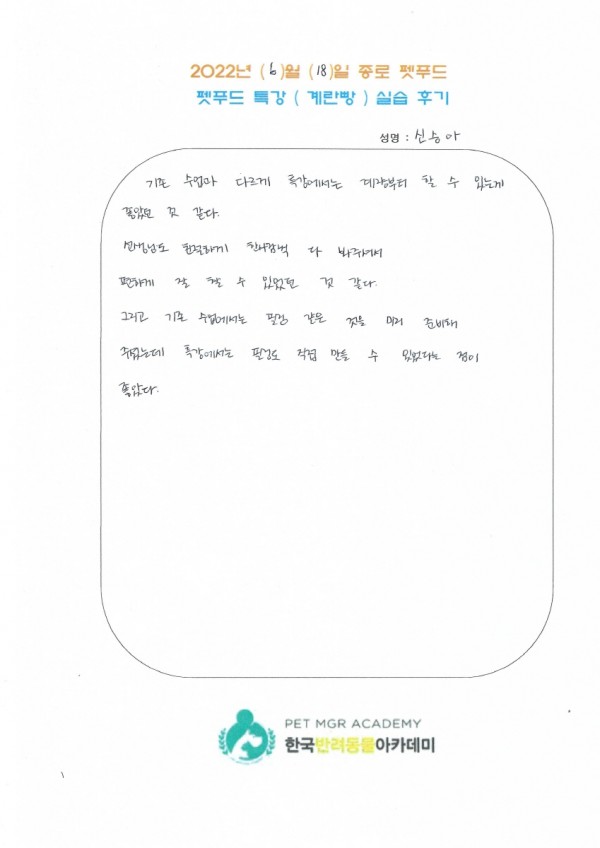 2022년 (6)월 (18)일 종로 펫푸드
펫푸드 특강 ( 계란빵 ) 실습 후기
성명 : 신승아
기존 수업과 다르게 특강에서는 계량부터 할 수 있는게
좋았던 것 같다.
선생님도 친절하게 하나하나 다 봐주셔서
편하게 잘 할 수 있었던 것 같다.
그리고 기존 수업에서는 필링 같은 것들 미리 준비해
주셨는데 특강에서는 필링도 직접 만들 수 있었다는 점이
좋았다.
PET MGR ACADEMY
한국반려동물아카데미